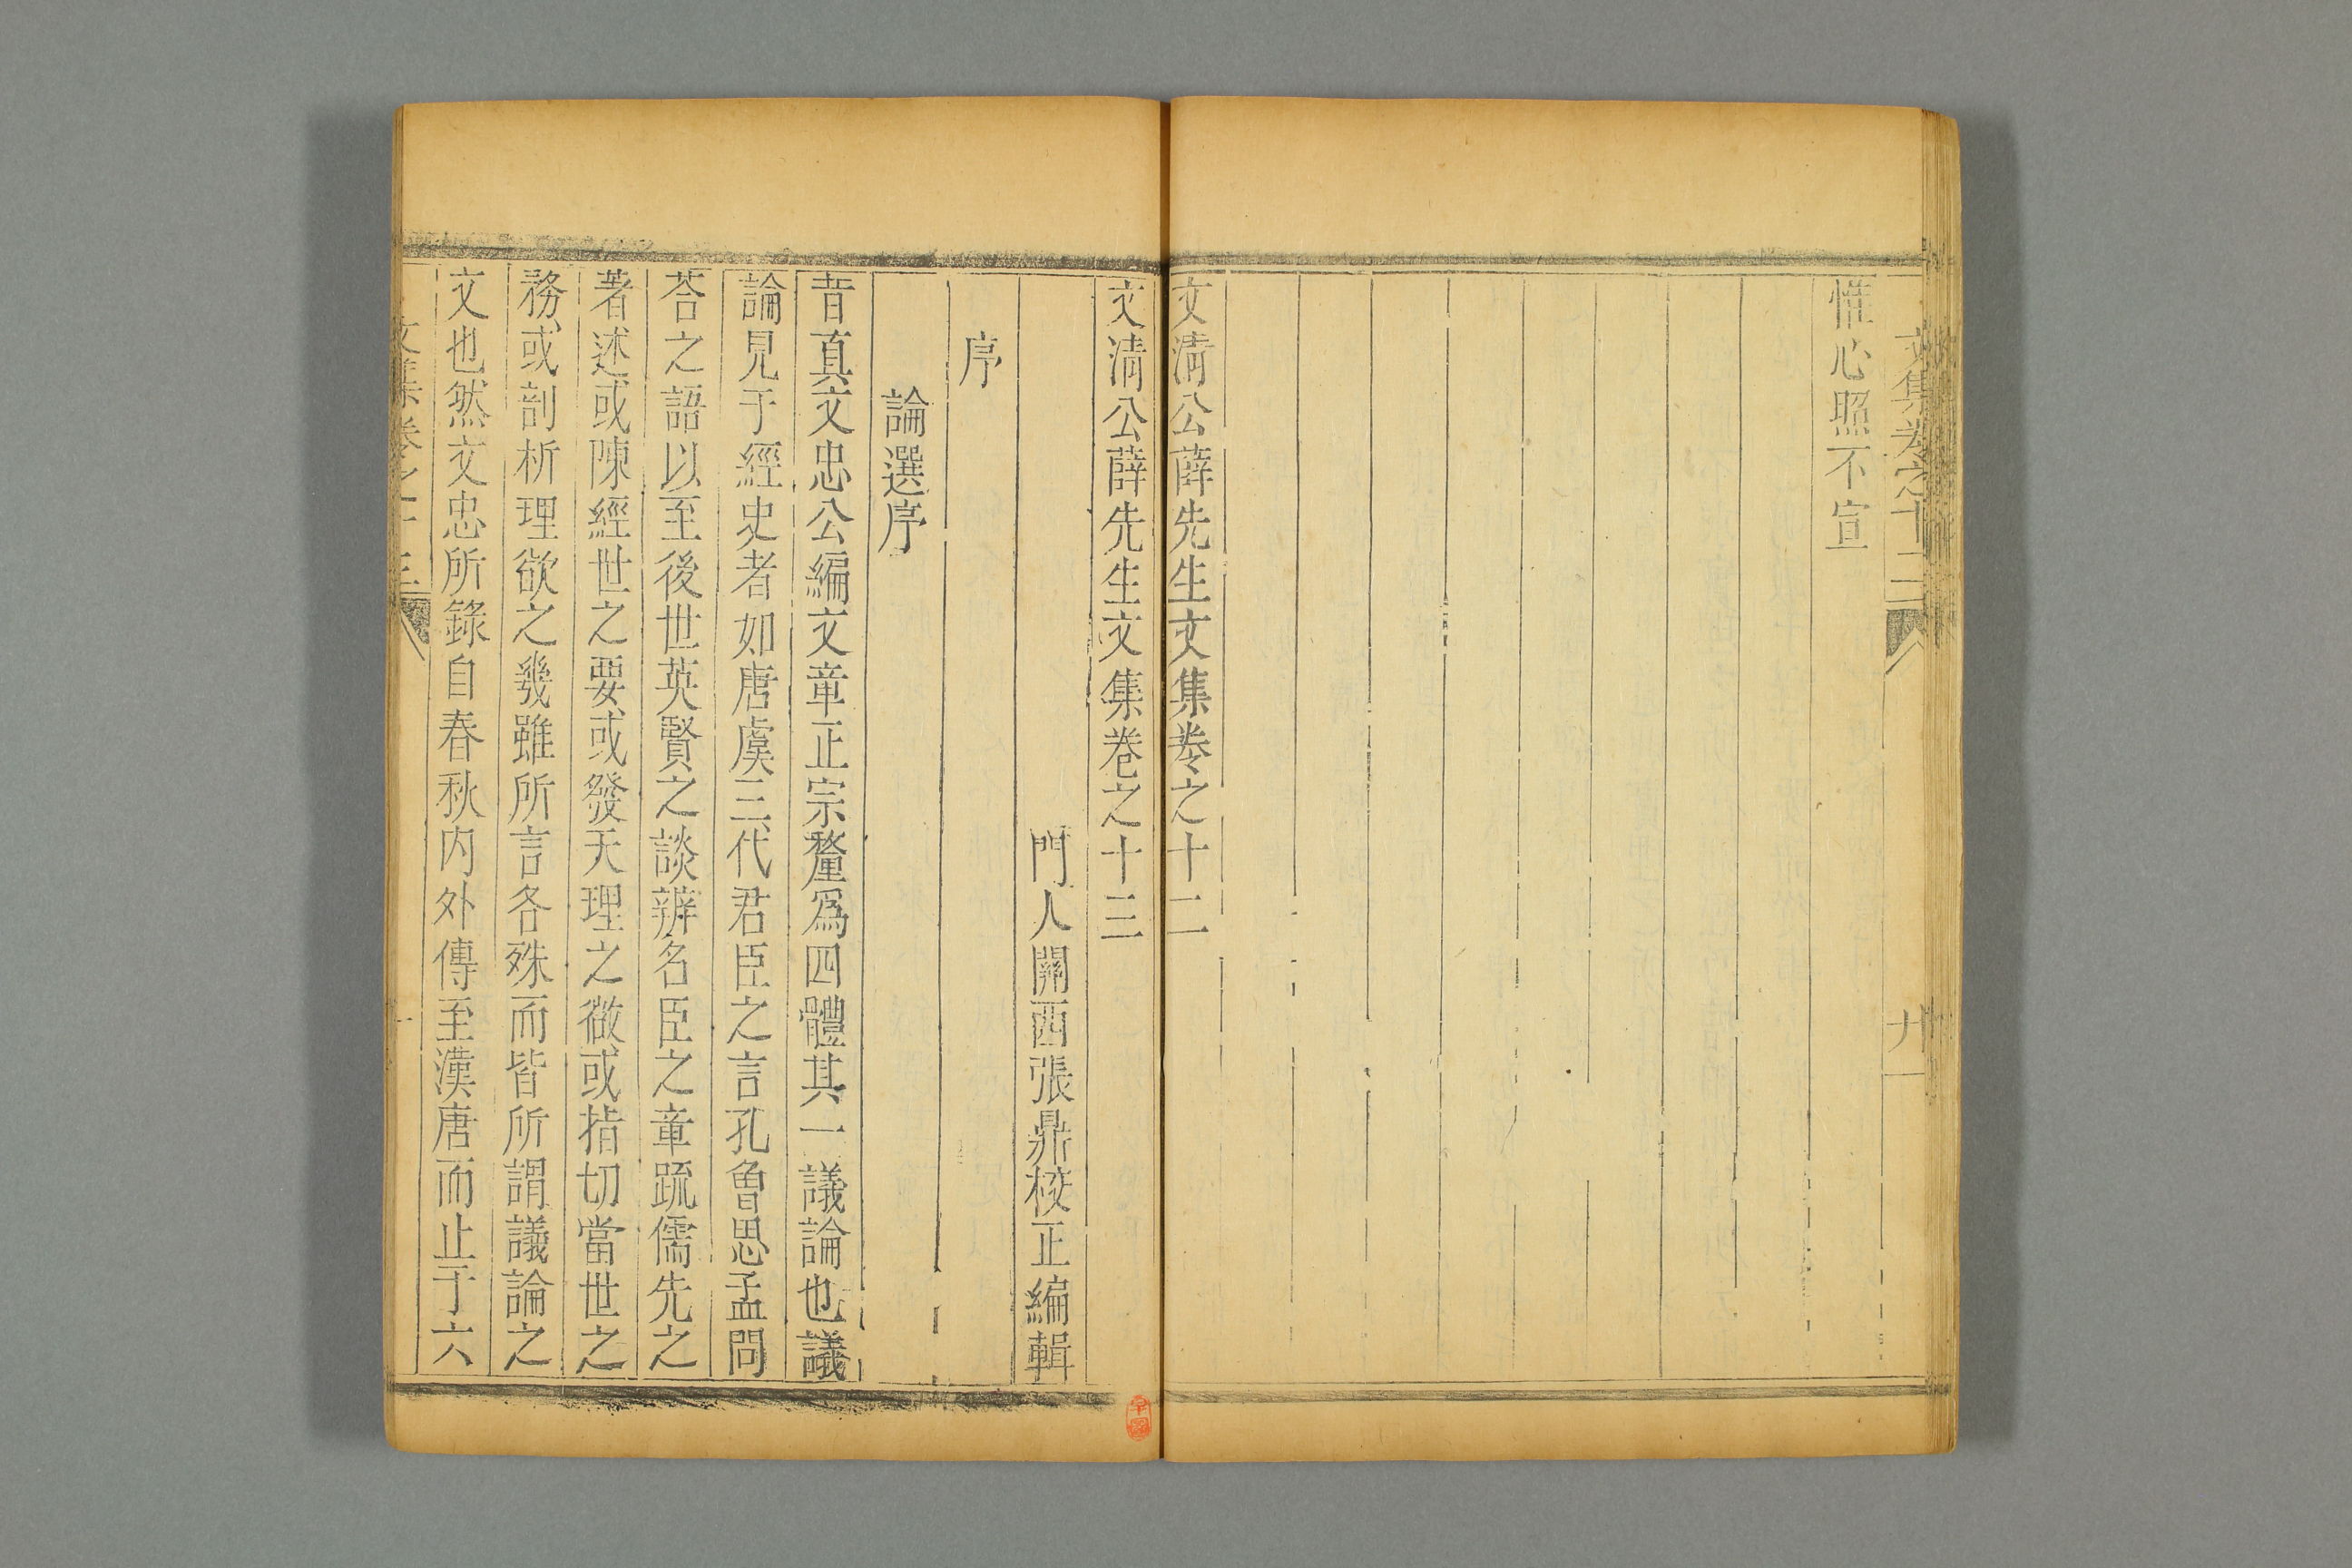 文集卷之十二 九
惟心照不宣
文清公薛先生文集卷之十二
文清公薛先生文集卷之十三
門人關西張鼎校正編輯
序
論選序
昔真文忠公編文章正宗釐爲四體其一議論也議
論見于經史者如唐虞三代君臣之言孔魯思孟問
荅之語以至後世英賢之談辨名臣之章疏儒先之
著述或陳經世之要或發天理之微或指切當世之
務或剖析理欲之幾雖所言各殊而皆所謂議論之
文也然文忠所錄自春秋内外傳至漢唐而止于六
文集卷之十三 一